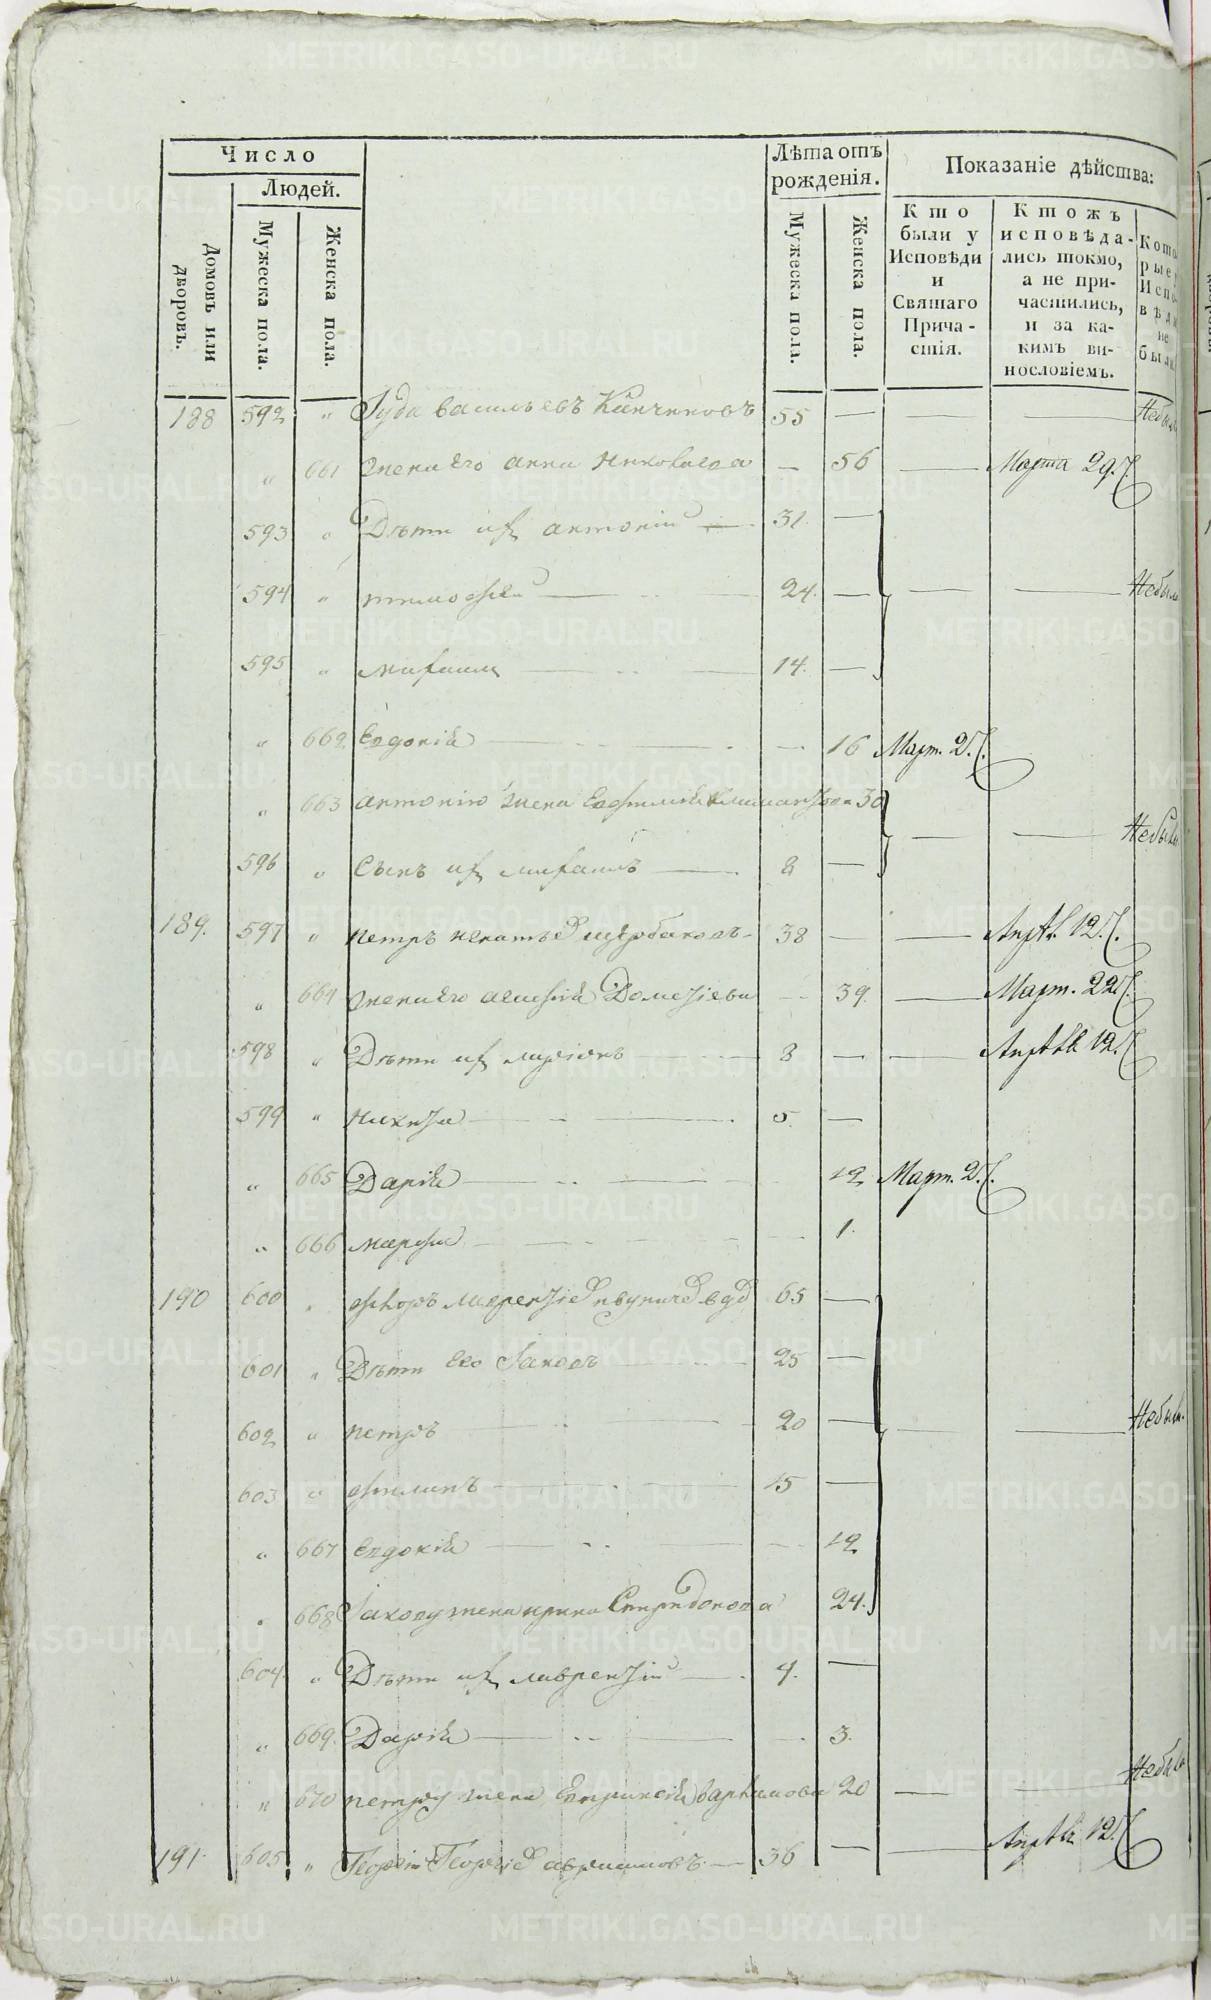 Число
Людей.
Домовъ или дворовъ.
Мужеска пола.
Женска пола.
Лѣта отъ рожденія.
Мужеска пола.
Женска пола.
Показаніе дѣйства:
Кто были у Исповѣди и Святаго Причастія.
Ктожъ исповѣдались токмо, а не причастились, и за какимъ винословіемъ.
Которые у Исповѣди не были
188 592 " Іуда васильевъ 55 — — — Небы
" 661 жена его анна — 56 — Марта 29.
593 " Дѣти их антоній — 31. —
594 " тимофей — 24. — — — Небыли
595 " михаил — 14. —
" 662 Евдокія — 16 Март. 27.
" 663 антонію жена 30
596 " Сынъ их михаилъ — 8 — — — Небыли
189. 597 " петръ игнатьев щербаковъ - 38 — — Апрѣ. 12.
" 664 жена его Дометіева — 39. — Март. 22.
598 " Дѣти их — 8 — — Апрѣл 12.
599 " никита — 5. —
" 665 Дарія — 12 Март. 27.
" 666 марфа — 1.
190 600 " лаврентіев вдов 65 —
601 " Дѣти его Іаковъ — 25 —
602 " петръ — 20 — — — Небыли.
603 " филипъ — 15 —
" 667 Евдокія — 12
" 668 Іакову жена ирина Спиридонова 24.
604. " Дѣти их лаврентій — 4. —
" 669. Дарія — 3.
" 670 петру жена варламова 20 — — Небыл
191. 605 " Георгій Георгіев — 36 — — Апрѣл 12.
METRIKI.GASO-URAL.RU